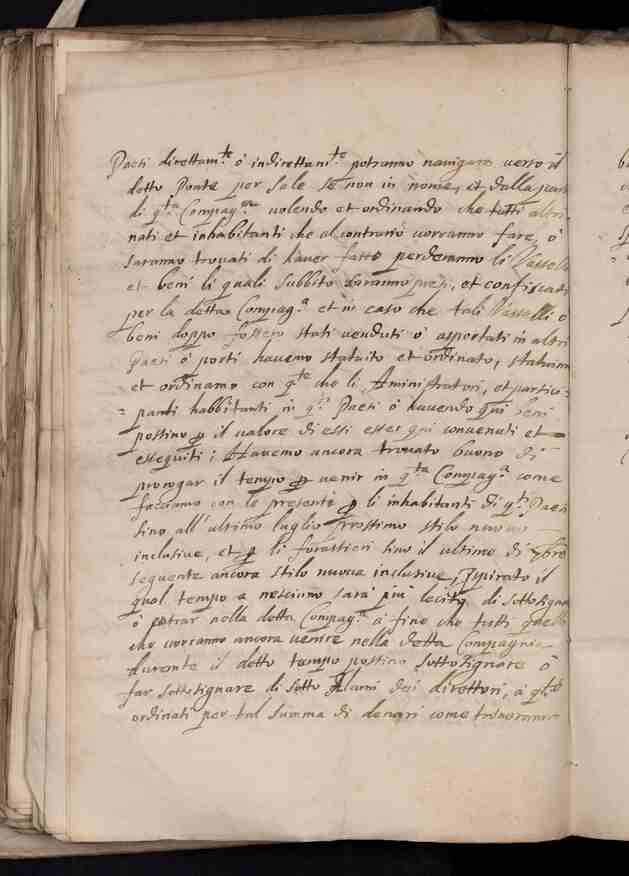 Paesi direttam.te ò indirettam.te potranno nauigare uerso il
detto Ponte per Sale se non in nome, et dalla parte
di q.ta Compag.a uolendo et ordinando che tutti altri
nati et inhabitanti che al contrario uorranno fare, ò
saranno trouati di hauer fatto perderanno li Vasselli
et beni li quali subbito saranno presi, et confiscati
per la detta Compag.a et in caso che tali Vasselli o
beni doppo fossero stati uenduti ò asportati in altri
Paesi ò porti hauemo statuito et ordinato, statuimo
et ordinamo con q.te che li Aministratori, et partici=
=panti habbitanti in q.ti Paesi ò hauendo qui beni
possino p il ualore di essi esser qui conuenuti et
esseguiti; Hauemo ancora trouato buono di
prorogar il tempo p uenir in q.ta Compag.a come
facciamo con le presente p li inhabitanti di q.ti Paesi
sino all' ultimo luglio prossimo stilo nuouo
inclusiue, et p li forastieri sino il ultimo di
seguente ancora stilo nuouo inclusiue, spirato il
qual tempo a nesciuno sarà più lecito di sottosignare
ò entrar nella detta Compag.a à fine che tutti quelli
che uorranno ancora uenire nella detta Compagnia
durante il detto tempo possino sottosignare ò
far sottosignare di sotto alcuni dei direttori, à q.to
ordinati per tal summa di denari come trouoranno